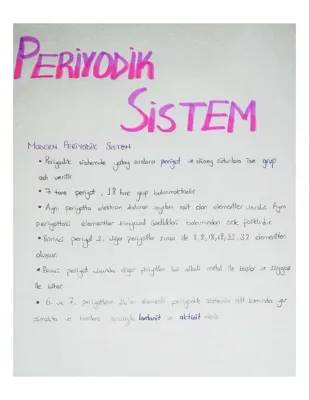 PERİYODİK
SİSTEM
MODERN PERİYODİK SİSTEM
• Periyodik sistemde yatay sıralara periyot ve düşey sütunlara ise grup
adı verilir.
• 7 tane periyot, 18 tane grup bulunmaktadır.
• Aynı periyotta elektron katman sayıları eşit olan elementler vardır. Aynı
periyottaki elementler kimyasal özellikleri bakımından çok farklıdır.
• Birinci periyot 2, diğer periyotlar sırası ile 8, 8, 18, 18, 32, 32 elementten
oluşur.
• Birinci periyot dışında diğer periyotlar bir alkali metal ile başlar ve soygaz
ile biter.
• 6. ve 7. periyotların 14'er elementi periyodik sistemin alt kısmında yer
almakta ve bunlara sırasıyla lantanit ve aktinit denir.